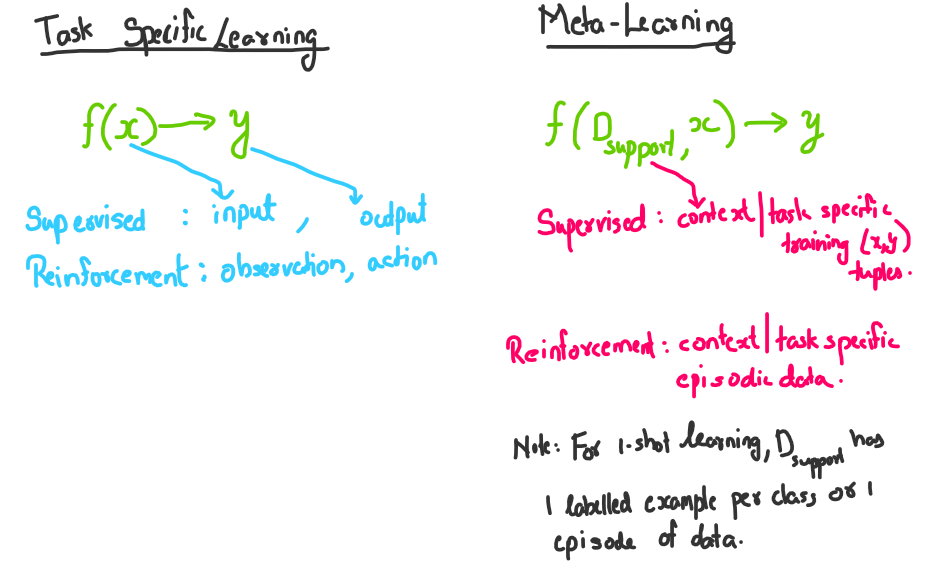 Task Specific Learning
f(x) → y
Supervised : input , output
Reinforcement : observation, action
Meta-Learning
f(D_support, x) → y
Supervised : context | task specific
training (x,y)
tuples.
Reinforcement : context | task specific
episodic data.
Note: For 1-shot learning, D_support has
1 labelled example per class or 1
episode of data.